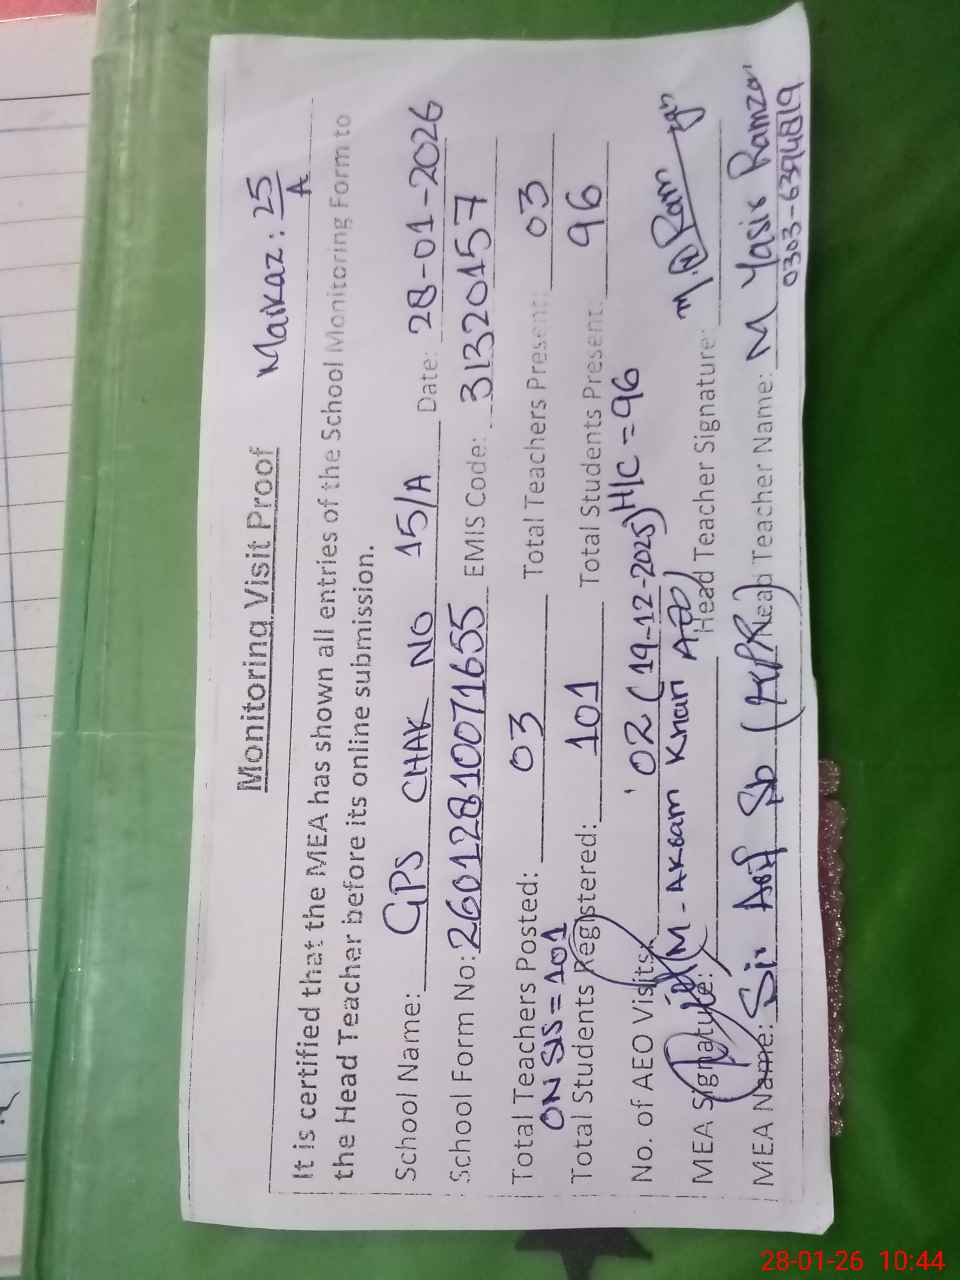 Monitoring Visit Proof Markaz: 25/A
It is certified that the MEA has shown all entries of the School Monitoring Form to
the Head Teacher before its online submission.
School Name: GPS CHAK NO 15/A Date: 28-01-2026
School Form No: 26012810071655 EMIS Code: 31320157
Total Teachers Posted: 03 Total Teachers Present: 03
ON SIS = 101
Total Students Registered: 101 Total Students Present: 96
No. of AEO Visits: 02 (19-12-2025) H/C = 96
M-AKRAM Khan AEO)
MEA Signature: Head Teacher Signature:
MEA Name: Sir Asif Sb Head Teacher Name: M Yasir Ramzan
0303-6394819
28-01-26 10:44